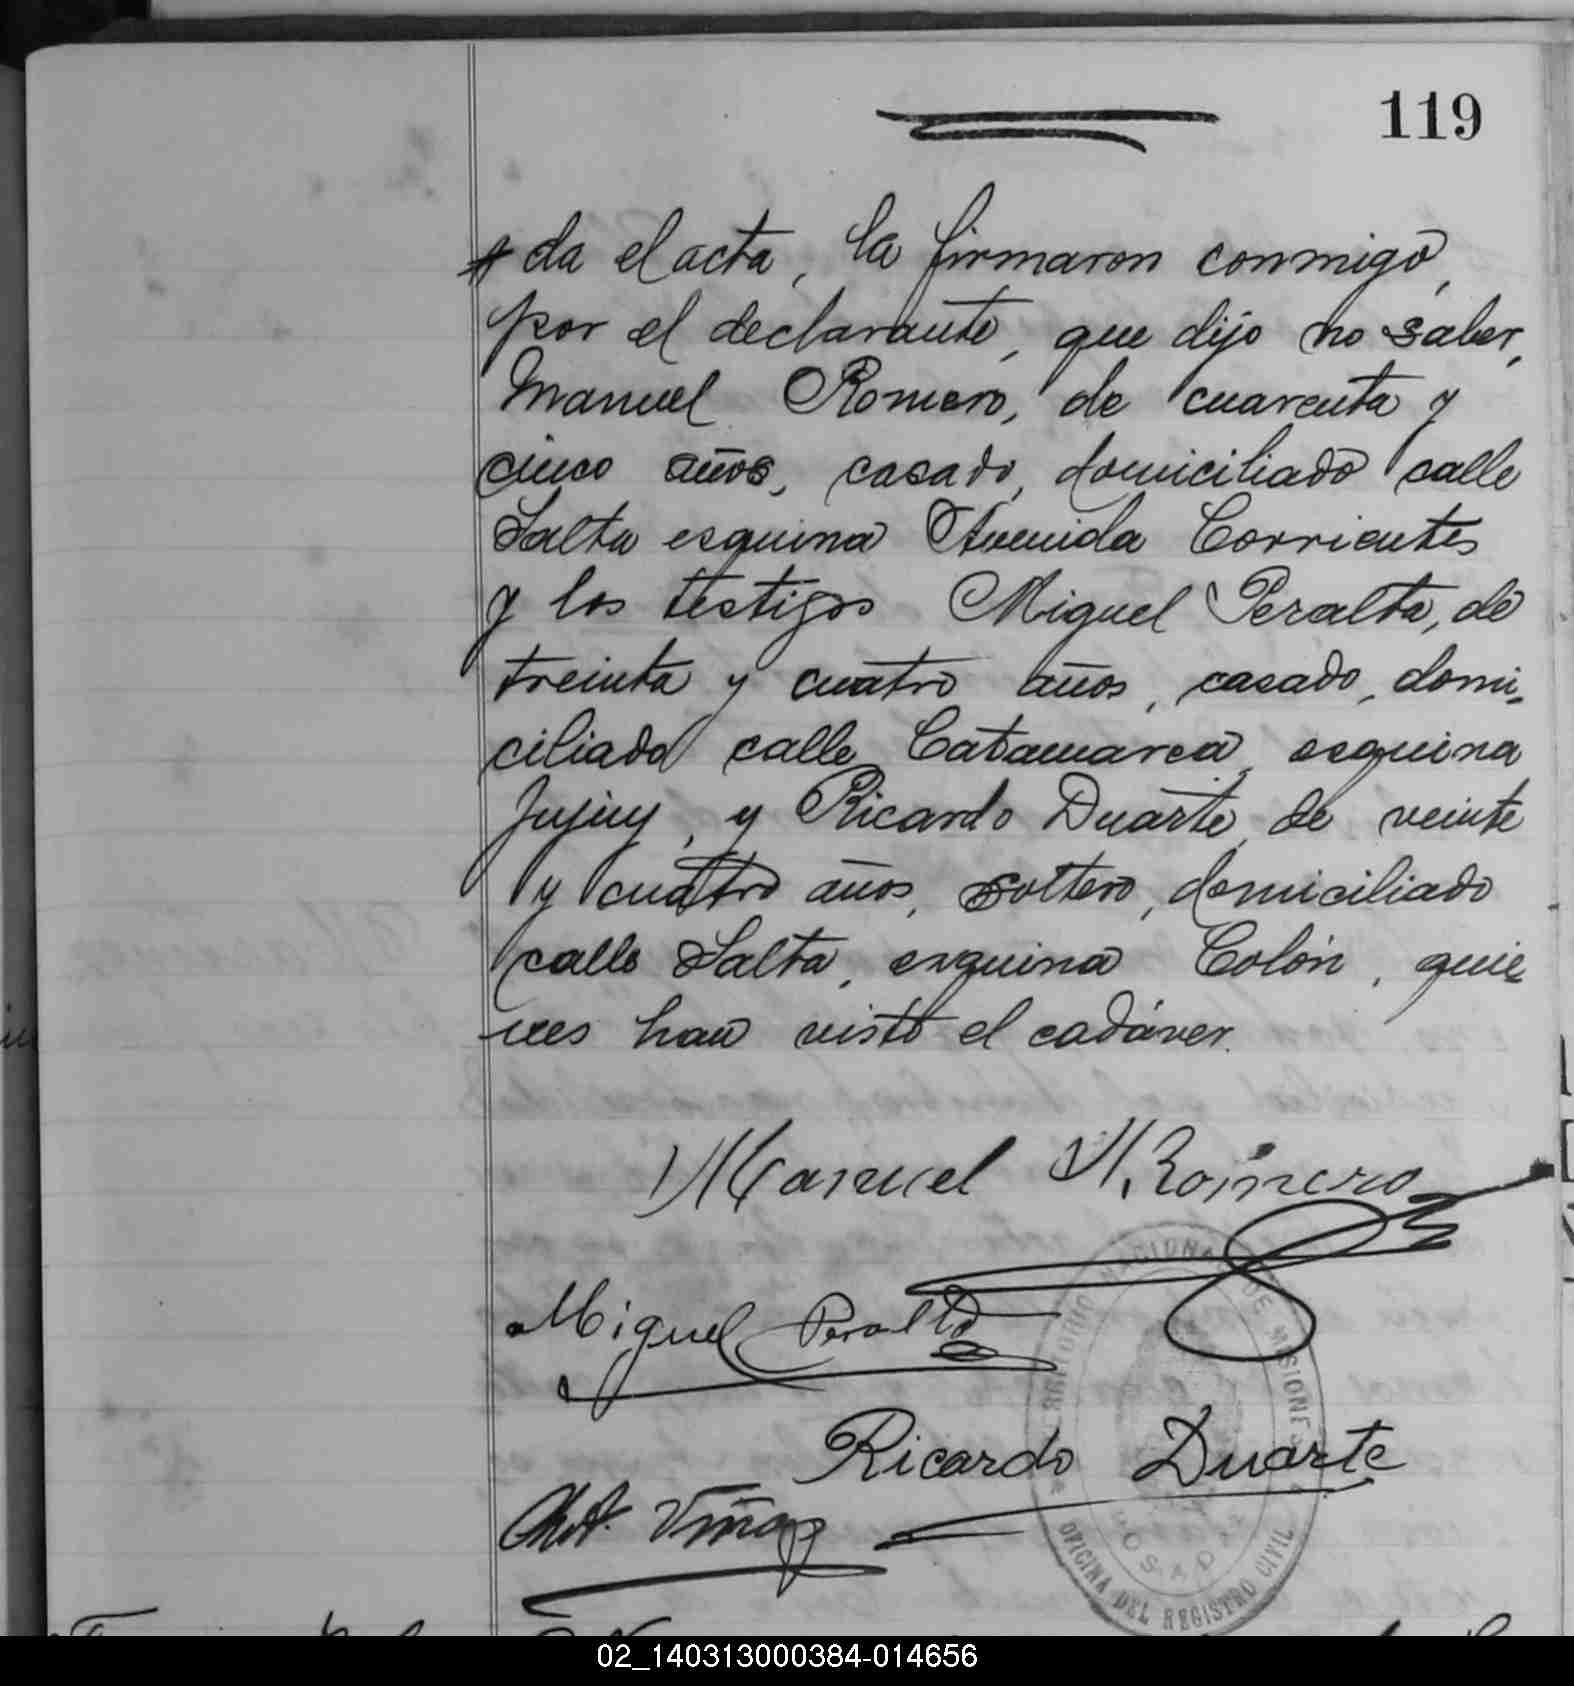 119
da el acta, la firmaron conmigo,
por el declarante, que dijo no saber,
Manuel Romero, de cuarenta y
cinco años, casado, domiciliado calle
Salta esquina Avenida Corrientes
y los testigos Miguel Peralta, de
treinta y cuatro años, casado, domi-
ciliado calle Catamarca, esquina
Jujuy, y Ricardo Duarte, de veinte
y cuatro años, soltero, domiciliado
calle Salta, esquina Colón, quie-
nes han visto el cadáver.
Manuel M. Romero
Miguel Peralta
TERRITORIO NACIONAL DE MISIONES
Ricardo Duarte
POSADAS
OFICINA DEL REGISTRO CIVIL
02_140313000384-014656